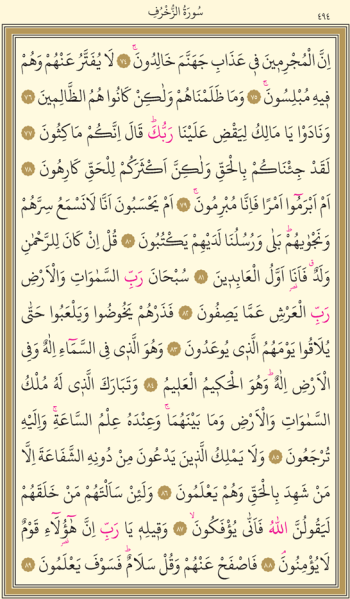 سُورَةُ الزُّخْرُفِ ٤٩٤
اِنَّ الْمُجْرِمٖينَ فٖي عَذَابِ جَهَنَّمَ خَالِدُونَۚ ٧٤ لَا يُفَتَّرُ عَنْهُمْ وَهُمْ
فٖيهِ مُبْلِسُونَۚ ٧٥ وَمَا ظَلَمْنَاهُمْ وَلٰكِنْ كَانُوا هُمُ الظَّالِمٖينَ ٧٦
وَنَادَوْا يَا مَالِكُ لِيَقْضِ عَلَيْنَا رَبُّكَؕ قَالَ اِنَّكُمْ مَاكِثُونَ ٧٧
لَقَدْ جِئْنَاكُمْ بِالْحَقِّ وَلٰكِنَّ اَكْثَرَكُمْ لِلْحَقِّ كَارِهُونَ ٧٨
اَمْ اَبْرَمُٓوا اَمْرًا فَاِنَّا مُبْرِمُونَۚ ٧٩ اَمْ يَحْسَبُونَ اَنَّا لَا نَسْمَعُ سِرَّهُمْ
وَنَجْوٰيهُمْؕ بَلٰى وَرُسُلُنَا لَدَيْهِمْ يَكْتُبُونَ ٨٠ قُلْ اِنْ كَانَ لِلرَّحْمٰنِ
وَلَدٌۗ فَاَنَا۬ اَوَّلُ الْعَابِدٖينَ ٨١ سُبْحَانَ رَبِّ السَّمٰوَاتِ وَالْاَرْضِ
رَبِّ الْعَرْشِ عَمَّا يَصِفُونَ ٨٢ فَذَرْهُمْ يَخُوضُوا وَيَلْعَبُوا حَتّٰى
يُلَاقُوا يَوْمَهُمُ الَّذٖي يُوعَدُونَ ٨٣ وَهُوَ الَّذٖي فِي السَّمَٓاءِ اِلٰهٌ وَفِي
الْاَرْضِ اِلٰهٌؕ وَهُوَ الْحَكٖيمُ الْعَلٖيمُ ٨٤ وَتَبَارَكَ الَّذٖي لَهُ مُلْكُ
السَّمٰوَاتِ وَالْاَرْضِ وَمَا بَيْنَهُمَاۚ وَعِنْدَهُ عِلْمُ السَّاعَةِۚ وَاِلَيْهِ
تُرْجَعُونَ ٨٥ وَلَا يَمْلِكُ الَّذٖينَ يَدْعُونَ مِنْ دُونِهِ الشَّفَاعَةَ اِلَّا
مَنْ شَهِدَ بِالْحَقِّ وَهُمْ يَعْلَمُونَ ٨٦ وَلَئِنْ سَاَلْتَهُمْ مَنْ خَلَقَهُمْ
لَيَقُولُنَّ اللّٰهُ فَاَنّٰى يُؤْفَكُونَۙ ٨٧ وَقٖيلِهٖ يَا رَبِّ اِنَّ هٰٓؤُ۬لَٓاءِ قَوْمٌ
لَا يُؤْمِنُونَۘ ٨٨ فَاصْفَحْ عَنْهُمْ وَقُلْ سَلَامٌؕ فَسَوْفَ يَعْلَمُونَ ٨٩